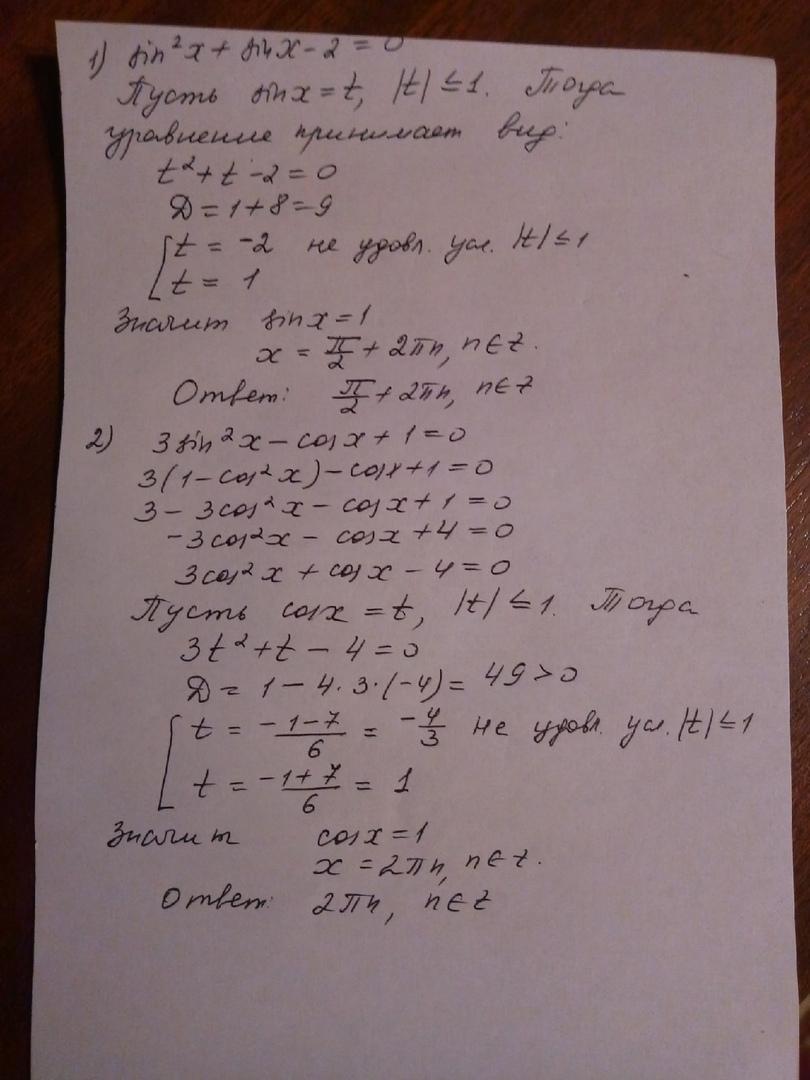 1) sin²x + sinx - 2 = 0
Пусть sinx = t, |t| ≤ 1. Тогда
уравнение принимает вид:
t² + t - 2 = 0
Д = 1 + 8 = 9
[ t = -2 не удовл. усл. |t| ≤ 1
t = 1
Значит sinx = 1
x = π/2 + 2πn, n ∈ Z.
Ответ: π/2 + 2πn, n ∈ Z
2) 3sin²x - cosx + 1 = 0
3(1 - cos²x) - cosx + 1 = 0
3 - 3cos²x - cosx + 1 = 0
-3cos²x - cosx + 4 = 0
3cos²x + cosx - 4 = 0
Пусть cosx = t, |t| ≤ 1. Тогда
3t² + t - 4 = 0
Д = 1 - 4·3·(-4) = 49 > 0
[ t = (-1-7)/6 = -4/3 не удовл. усл. |t| ≤ 1
t = (-1+7)/6 = 1
Значит cosx = 1
x = 2πn, n ∈ Z.
Ответ: 2πn, n ∈ Z